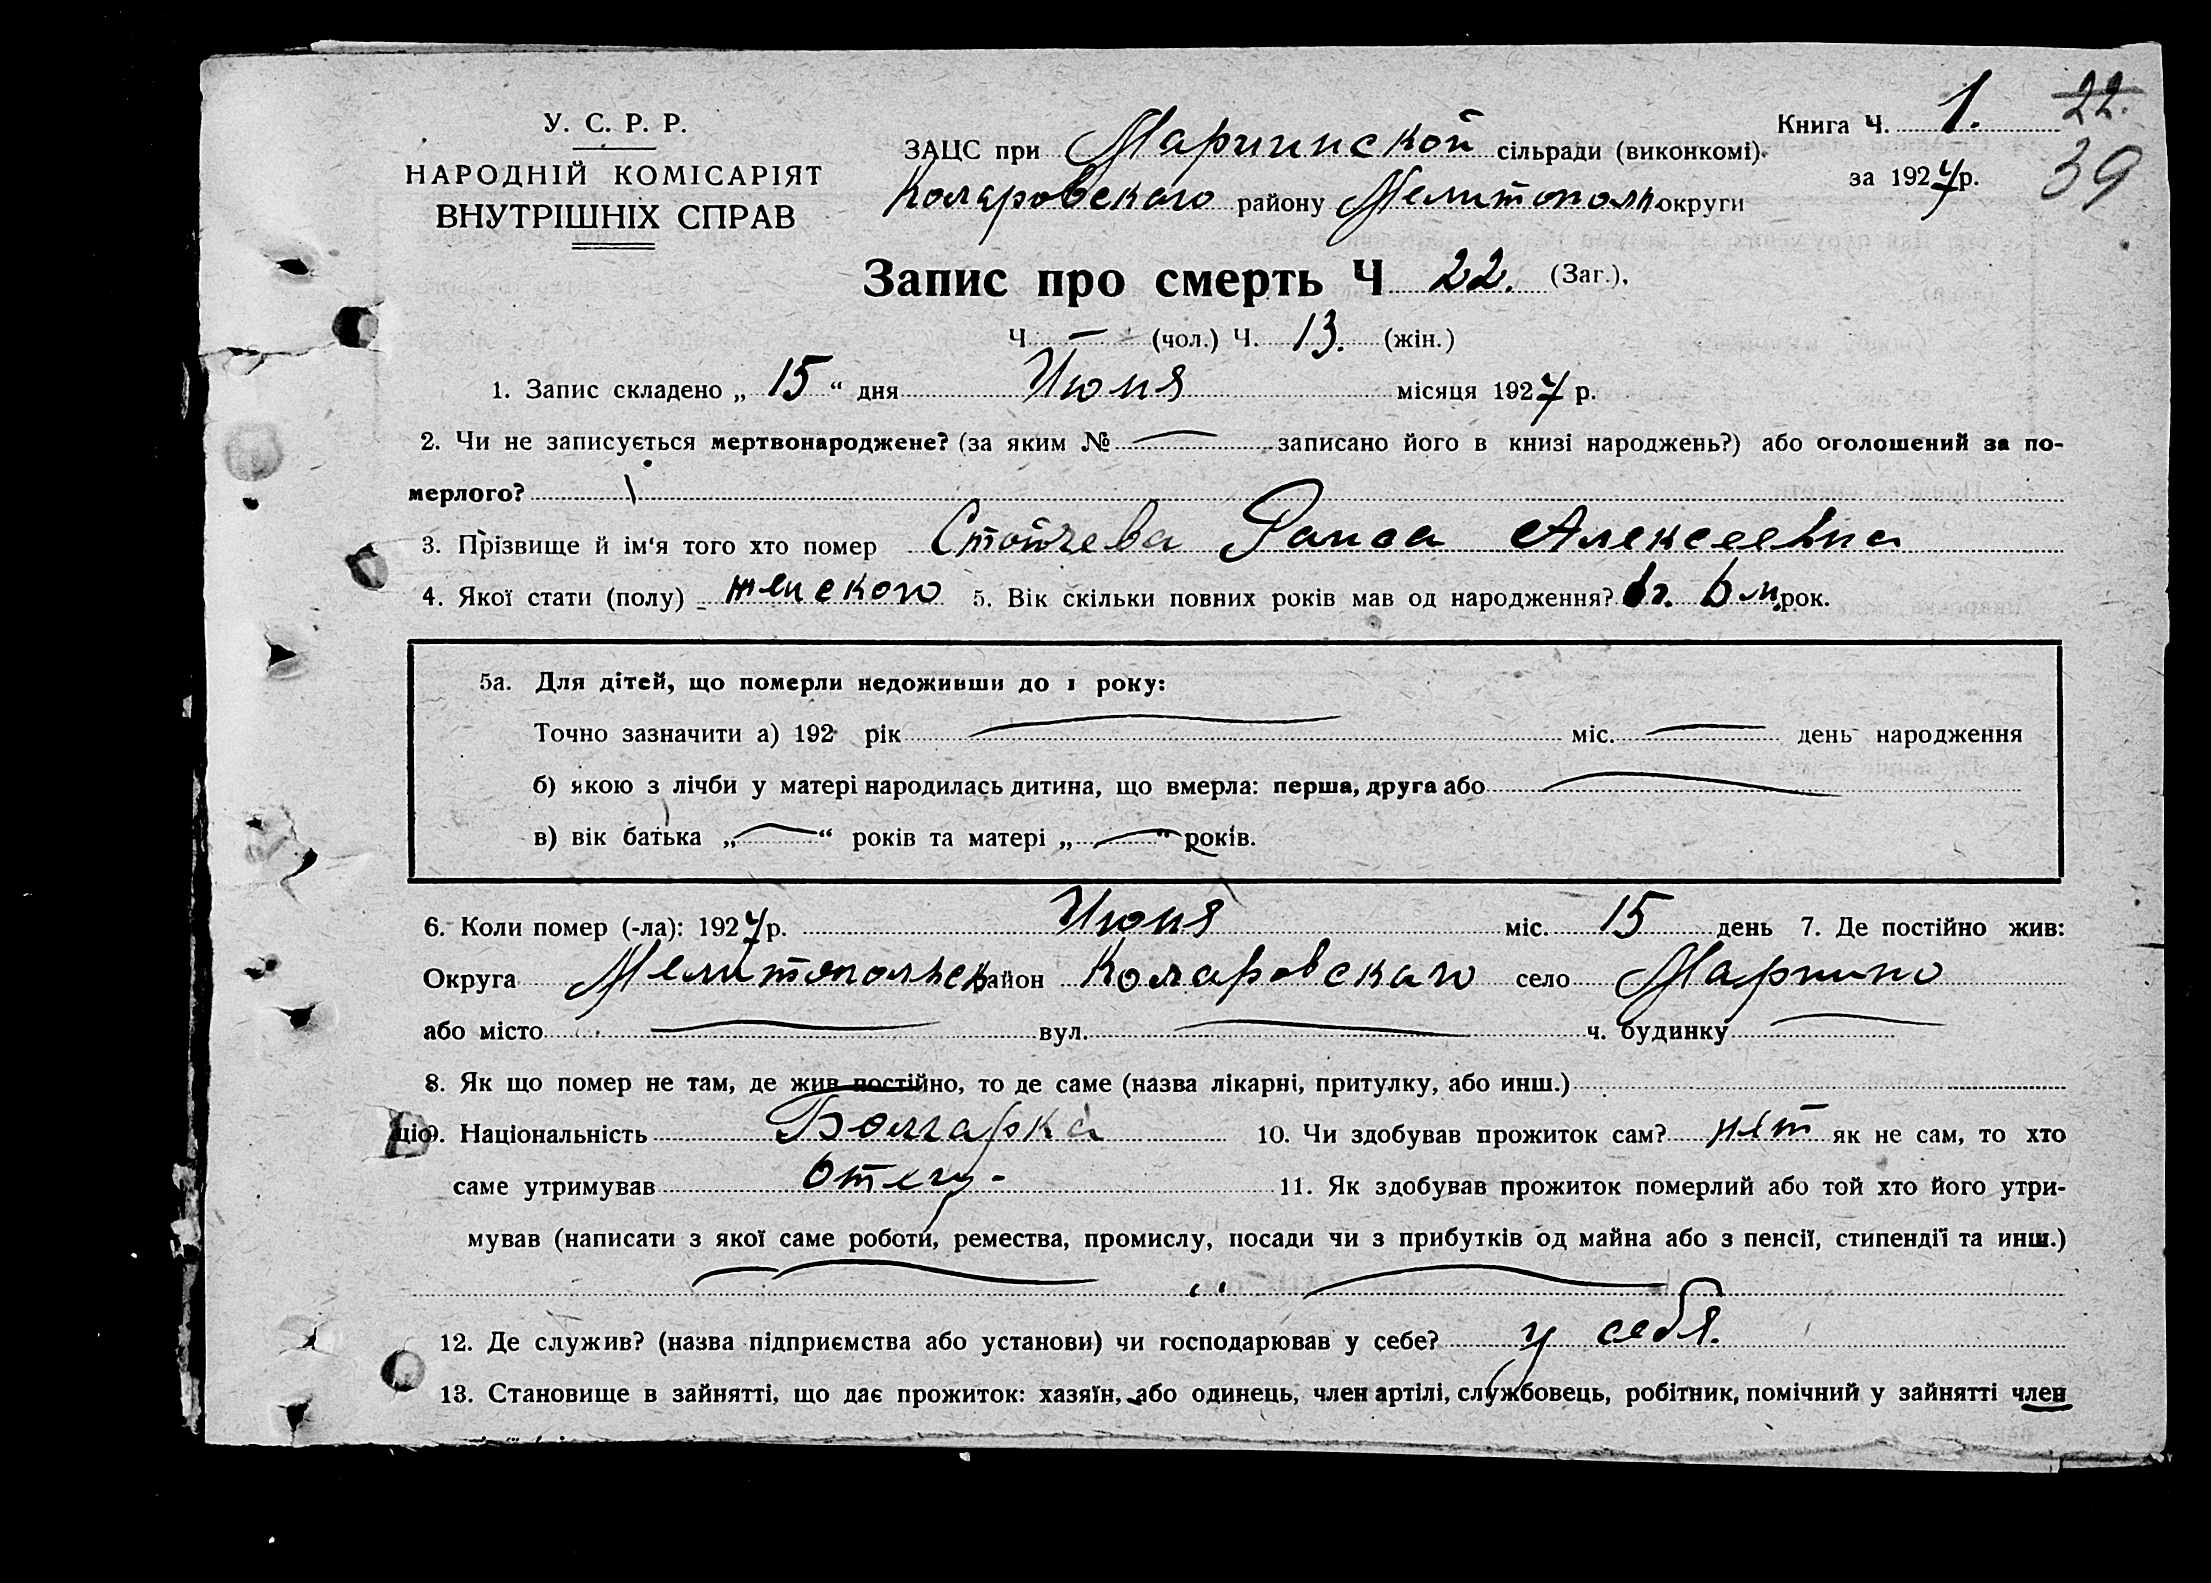 У. С. Р. Р.
НАРОДНІЙ КОМІСАРІЯТ
ВНУТРІШНІХ СПРАВ
ЗАЦС при Мариинской сільради (виконкомі).
Коларовского району Мелитопольс. округи
Книга Ч. 1.
за 1927 р.
22.
39
Запис про смерть Ч 22. (Заг.),
Ч — (чол.) Ч. 13. (жін.)
1. Запис складено „ 15 “ дня Июня місяця 1927 р.
2. Чи не записується мертвонароджене? (за яким № — записано його в книзі народжень?) або оголошений за по-
мерлого?
3. Прізвище й ім'я того хто помер Стойчева Раиса Алексеевна
4. Якої стати (полу) женского 5. Вік скільки повних років мав од народження? 1 г. 6 м. рок.
5а. Для дітей, що померли недоживши до 1 року:
Точно зазначити а) 192 рік — міс. — день народження
б) якою з лічби у матері народилась дитина, що вмерла: перша, друга або —
в) вік батька „ — “ років та матері „ — “ років.
6. Коли помер (-ла): 1927 р. Июня міс. 15 день 7. Де постійно жив:
Округа Мелитопольск район Коларовского село Марино
або місто — вул. — ч. будинку —
8. Як що помер не там, де жив постійно, то де саме (назва лікарні, притулку, або инш.)
ціо
9. Національність Болгарка 10. Чи здобував прожиток сам? нет як не сам, то хто
саме утримував отец - 11. Як здобував прожиток померлий або той хто його утри-
мував (написати з якої саме роботи, ремества, промислу, посади чи з прибутків од майна або з пенсії, стипендії та инш.)
12. Де служив? (назва підприємства або установи) чи господарював у себе? у себя.
13. Становище в зайнятті, що дає прожиток: хазяїн, або одинець, член артілі, службовець, робітник, помічний у зайнятті член